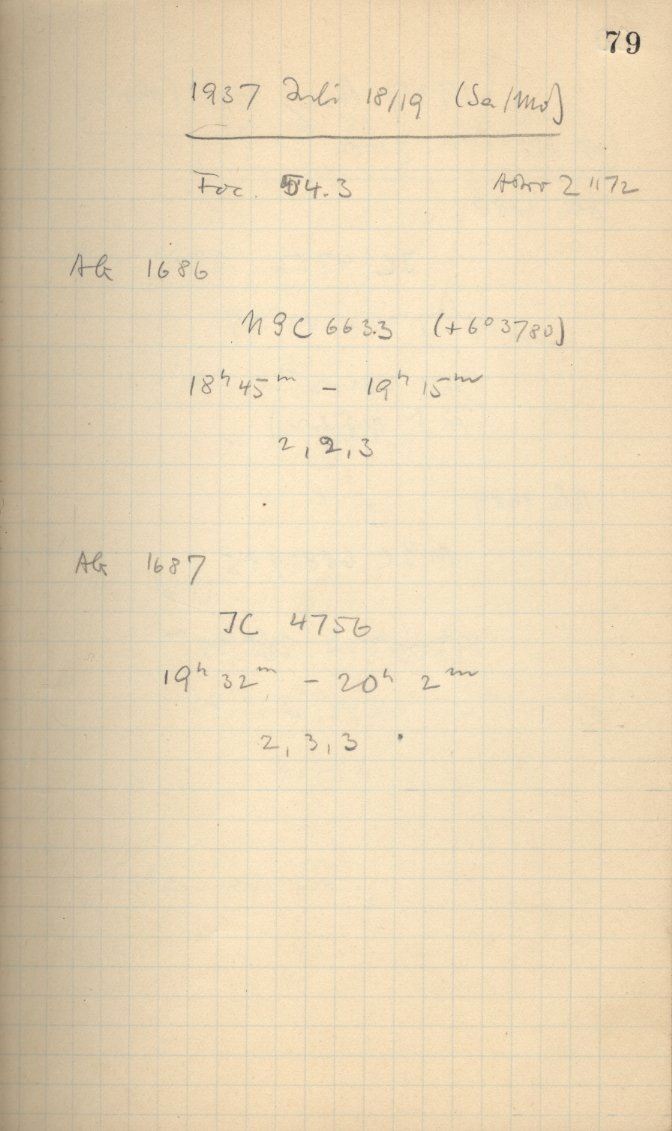 79
1937 Juli 18/19 (So/Mo)
Foc. 54.3 2 1172
AG 1686
NGC 6633 (+6° 3780)
18ʰ 45ᵐ – 19ʰ 15ᵐ
2, 2, 3
AG 1687
IC 4756
19ʰ 32ᵐ – 20ʰ 2ᵐ
2, 3, 3